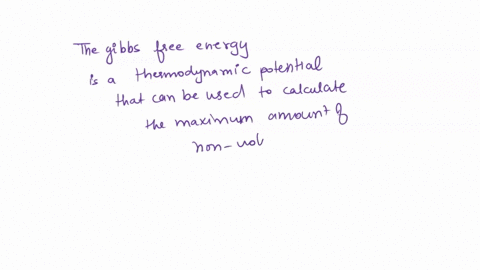 The gibbs free energy
is a thermodynamic potential
that can be used to calculate
the maximum amount of
non-vol